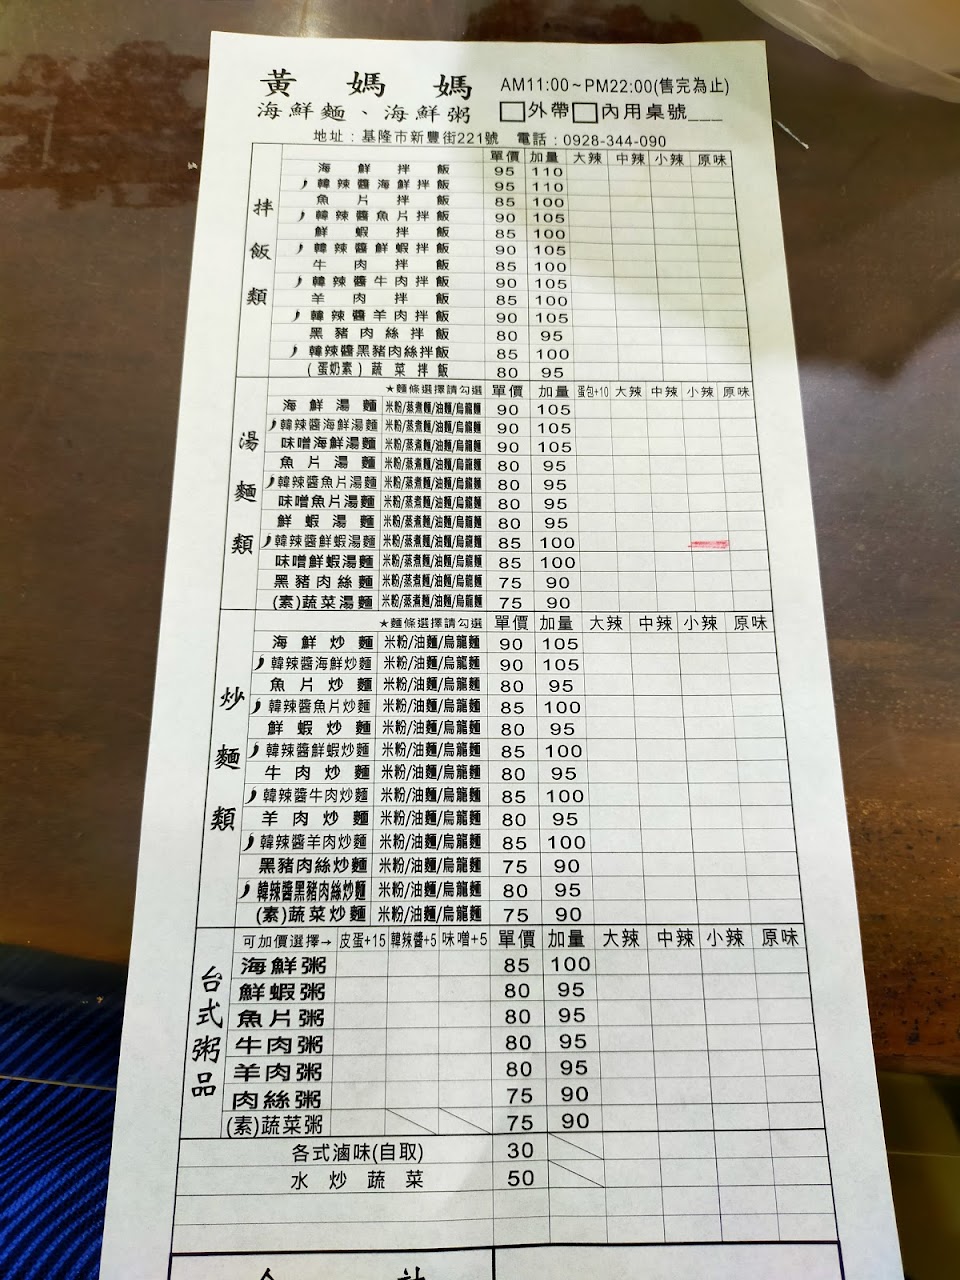 黃媽媽 AM11:00~PM22:00(售完為止)
海鮮麵、海鮮粥 □外帶□內用桌號___
地址：基隆市新豐街221號 電話：0928-344-090
拌飯類
單價 加量 大辣 中辣 小辣 原味
海鮮拌飯 95 110
韓辣醬海鮮拌飯 95 110
魚片拌飯 85 100
韓辣醬魚片拌飯 90 105
鮮蝦拌飯 85 100
韓辣醬鮮蝦拌飯 90 105
牛肉拌飯 85 100
韓辣醬牛肉拌飯 90 105
羊肉拌飯 85 100
韓辣醬羊肉拌飯 90 105
黑豬肉絲拌飯 80 95
韓辣醬黑豬肉絲拌飯 85 100
(蛋奶素)蔬菜拌飯 80 95
湯麵類
★麵條選擇請勾選 單價 加量 蛋包+10 大辣 中辣 小辣 原味
海鮮湯麵 米粉/蒸煮麵/油麵/烏龍麵 90 105
韓辣醬海鮮湯麵 米粉/蒸煮麵/油麵/烏龍麵 90 105
味噌海鮮湯麵 米粉/蒸煮麵/油麵/烏龍麵 90 105
魚片湯麵 米粉/蒸煮麵/油麵/烏龍麵 80 95
韓辣醬魚片湯麵 米粉/蒸煮麵/油麵/烏龍麵 80 95
味噌魚片湯麵 米粉/蒸煮麵/油麵/烏龍麵 80 95
鮮蝦湯麵 米粉/蒸煮麵/油麵/烏龍麵 80 95
韓辣醬鮮蝦湯麵 米粉/蒸煮麵/油麵/烏龍麵 85 100
味噌鮮蝦湯麵 米粉/蒸煮麵/油麵/烏龍麵 85 100
黑豬肉絲麵 米粉/蒸煮麵/油麵/烏龍麵 75 90
(素)蔬菜湯麵 米粉/蒸煮麵/油麵/烏龍麵 75 90
炒麵類
★麵條選擇請勾選 單價 加量 大辣 中辣 小辣 原味
海鮮炒麵 米粉/油麵/烏龍麵 90 105
韓辣醬海鮮炒麵 米粉/油麵/烏龍麵 90 105
魚片炒麵 米粉/油麵/烏龍麵 80 95
韓辣醬魚片炒麵 米粉/油麵/烏龍麵 85 100
鮮蝦炒麵 米粉/油麵/烏龍麵 80 95
韓辣醬鮮蝦炒麵 米粉/油麵/烏龍麵 85 100
牛肉炒麵 米粉/油麵/烏龍麵 80 95
韓辣醬牛肉炒麵 米粉/油麵/烏龍麵 85 100
羊肉炒麵 米粉/油麵/烏龍麵 80 95
韓辣醬羊肉炒麵 米粉/油麵/烏龍麵 85 100
黑豬肉絲炒麵 米粉/油麵/烏龍麵 75 90
韓辣醬黑豬肉絲炒麵 米粉/油麵/烏龍麵 80 95
(素)蔬菜炒麵 米粉/油麵/烏龍麵 75 90
台式粥品
可加價選擇→ 皮蛋+15 韓辣醬+5 味噌+5 單價 加量 大辣 中辣 小辣 原味
海鮮粥 85 100
鮮蝦粥 80 95
魚片粥 80 95
牛肉粥 80 95
羊肉粥 80 95
肉絲粥 75 90
(素)蔬菜粥 75 90
各式滷味(自取) 30
水炒蔬菜 50